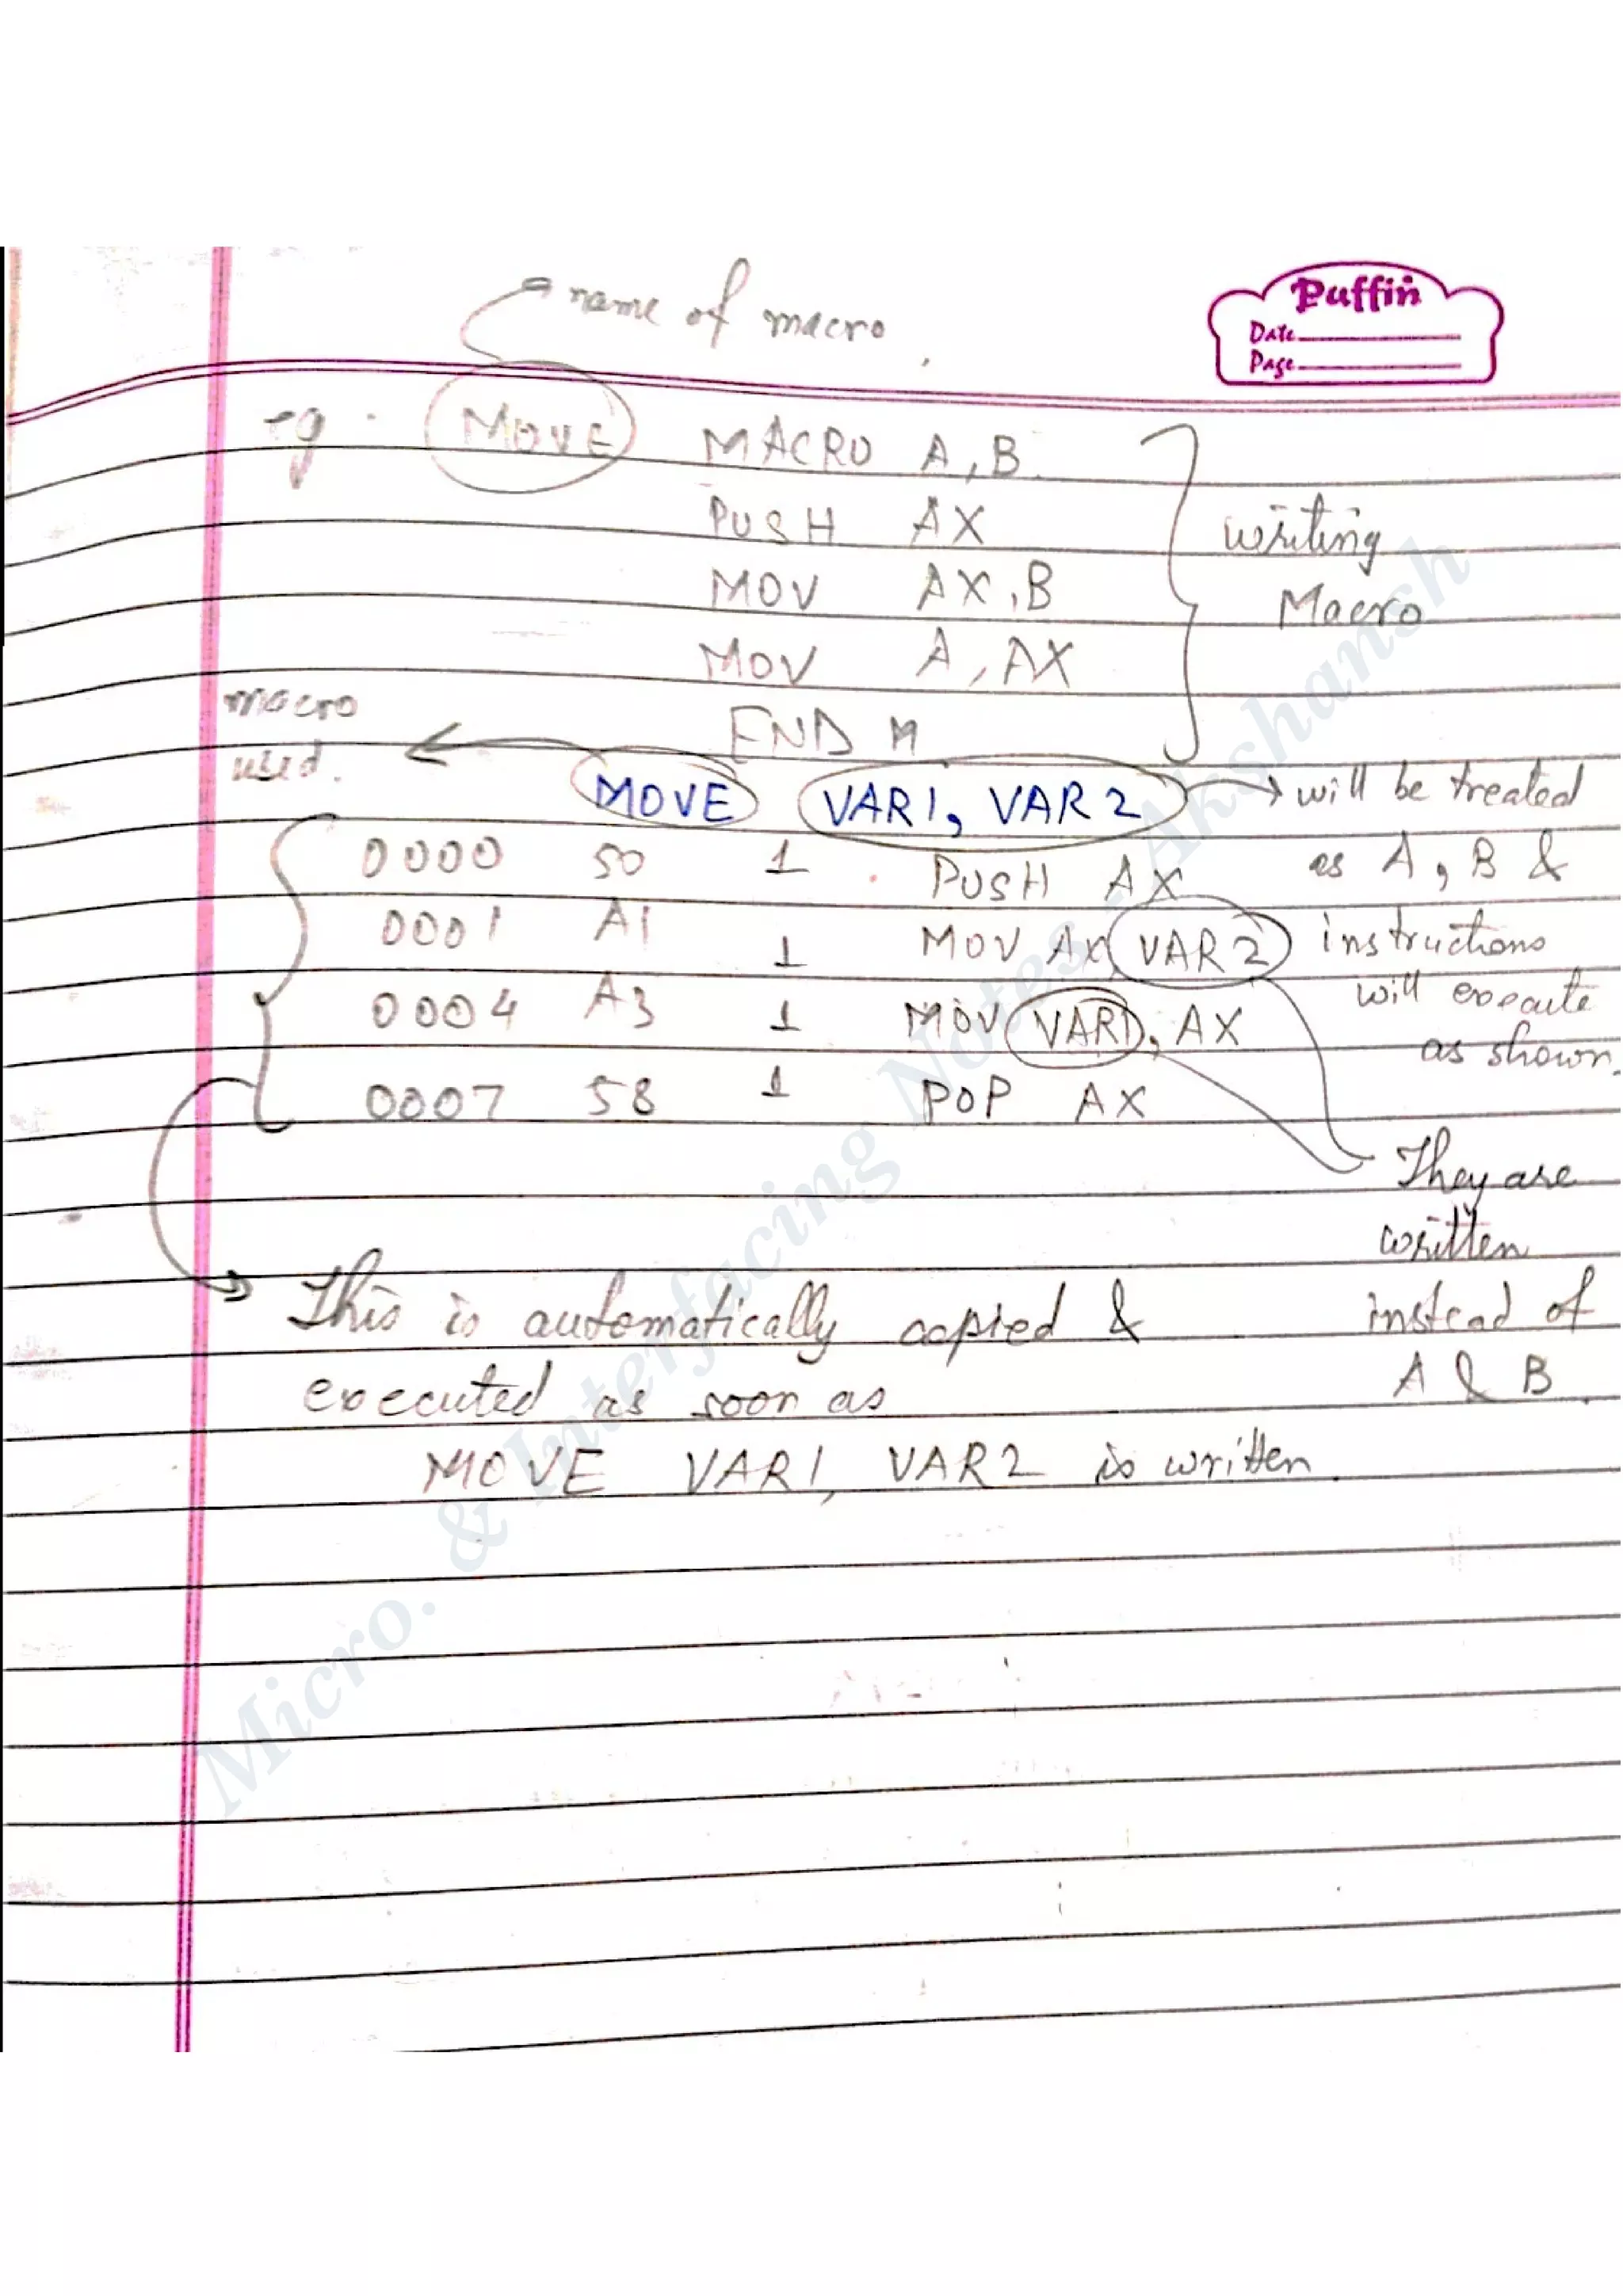 name of macro.
Puffin
Date
Page
eg. MOVE MACRO A, B
PUSH AX
MOV AX, B
MOV A, AX
END M
writing
Macro
macro
used.
MOVE VAR1, VAR2
will be treated
as A, B &
instructions
will execute
as shown.
0000 50 1 PUSH AX
0001 A1 1 MOV AX VAR2
0004 A3 1 MOV VAR1, AX
0007 58 1 POP AX
They are
written
instead of
A & B.
This is automatically copied &
executed as soon as
MOVE VAR1, VAR2 is written.
Micro. & Interfacing Notes - Akshansh